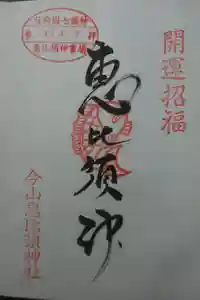 開運招福
恵比須神
今山恵比須神社